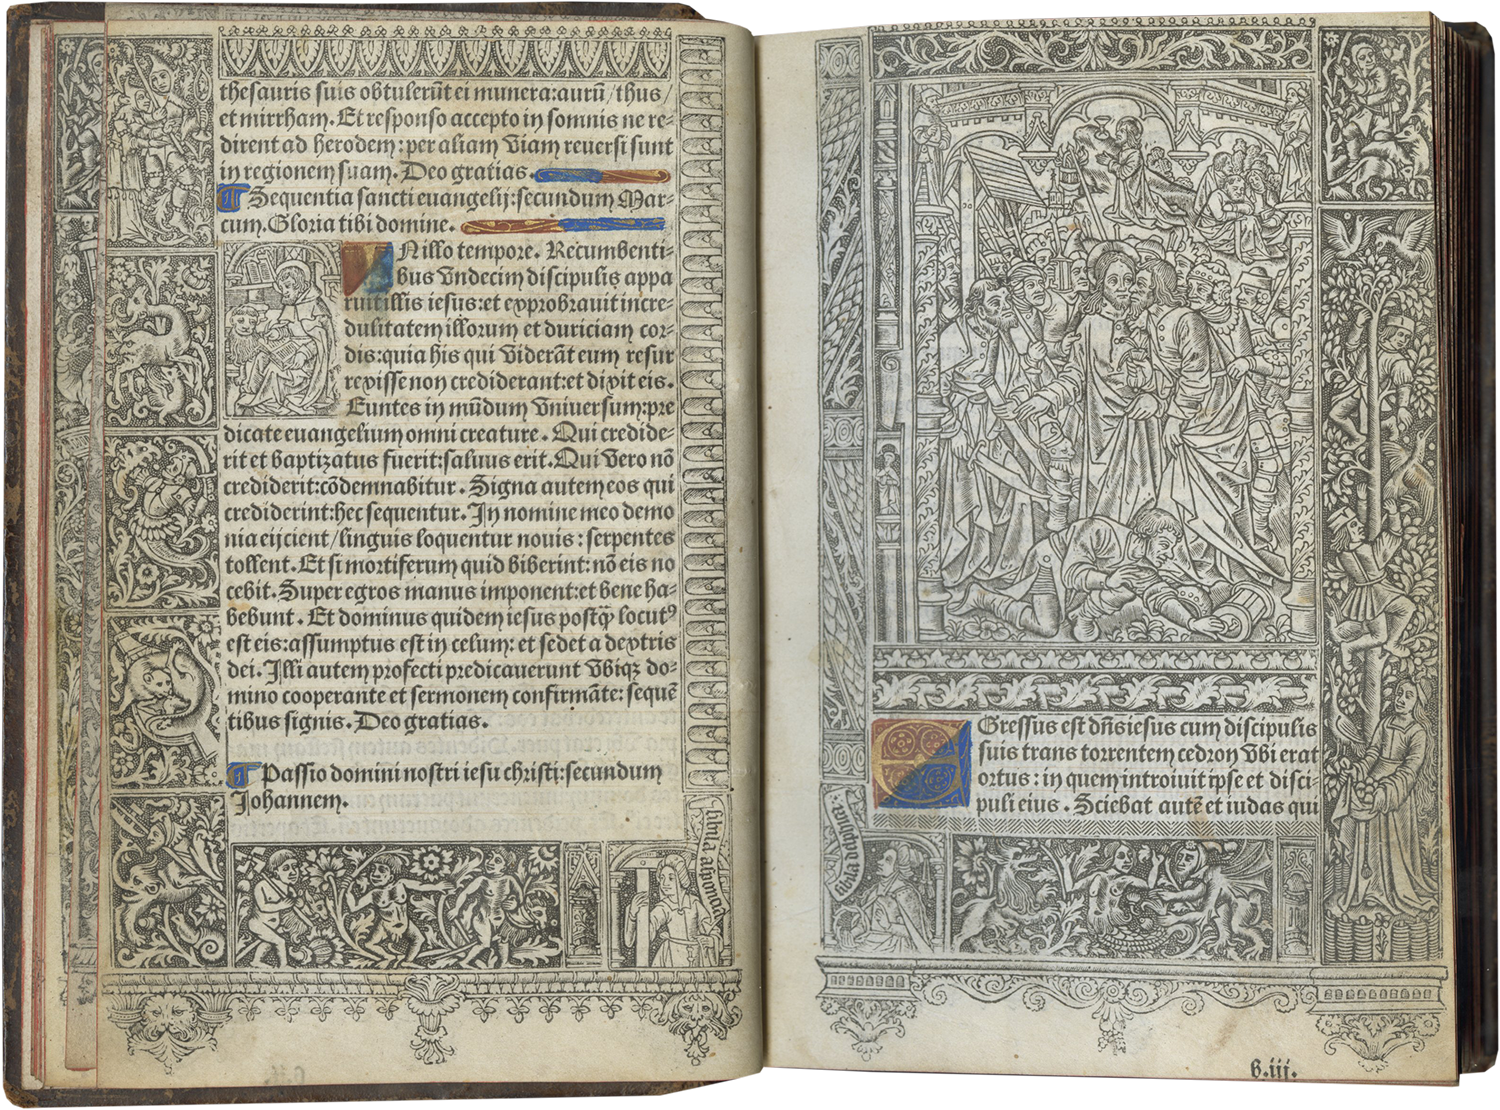 thesauris suis obtulerūt ei munera:aurū/thus/
et mirrham. Et responso accepto in somnis ne re-
dirent ad herodem: per aliam viam reuersi sunt
in regionem suam. Deo gratias.
Sequentia sancti euangelij: secundum Mar-
cum. Gloria tibi domine.
N illo tempore. Recumbenti-
bus vndecim discipulis appa
ruit illis iesus: et exprobrauit incre-
dulitatem illorum et duriciam cor-
dis: quia his qui viderāt eum resur
rexisse non crediderant: et dixit eis.
Euntes in mūdum vniuersum: pre
dicate euangelium omni creature. Qui credide-
rit et baptizatus fuerit: saluus erit. Qui vero nō
crediderit: cōdemnabitur. Signa autem eos qui
crediderint: hec sequentur. In nomine meo demo
nia eijcient/linguis loquentur nouis: serpentes
tollent. Et si mortiferum quid biberint: nō eis no
cebit. Super egros manus imponent: et bene ha-
bebunt. Et dominus quidem iesus postq̄ locutꝰ
est eis: assumptus est in celum: et sedet a dextris
dei. Illi autem profecti predicauerunt vbiqꝫ do-
mino cooperante et sermonem confirmāte: sequē
tibus signis. Deo gratias.
Passio domini nostri iesu christi: secundum
Johannem.
E Gressus est dn̄s iesus cum discipulis
suis trans torrentem cedron vbi erat
ortus: in quem introiuit ipse et disci-
puli eius. Sciebat autē et iudas qui
b.iij.